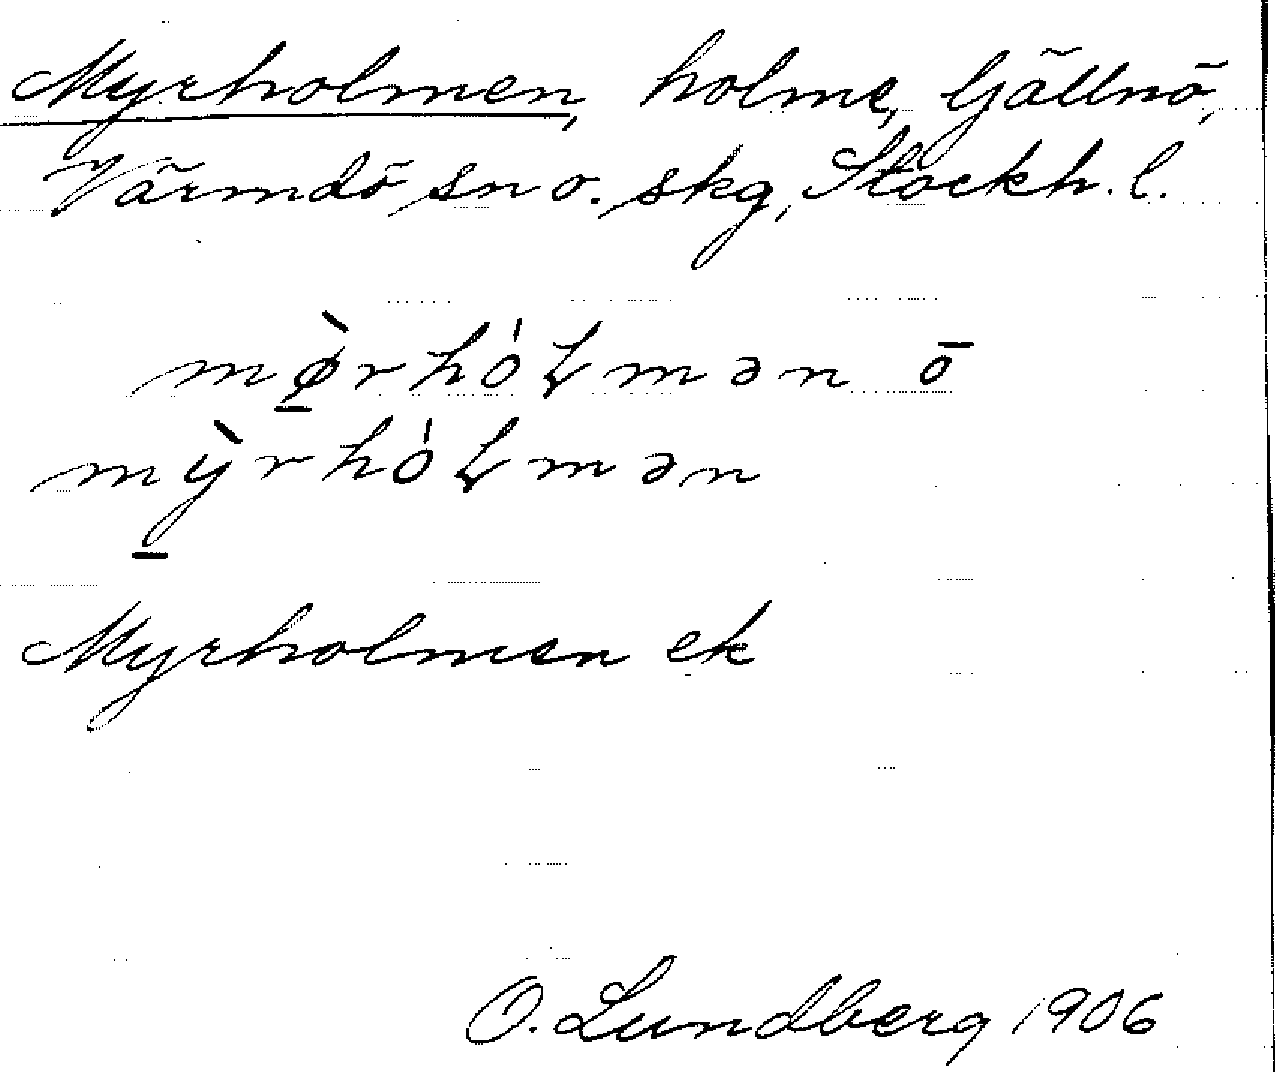 Myrholmen, holme, Gällnö,
Värmdö sn o. skg, Stockh. l.
mø̠̀rhóɫmən ō
mỳ̠rhóɫmən
Myrholmen ek
O. Lundberg 1906